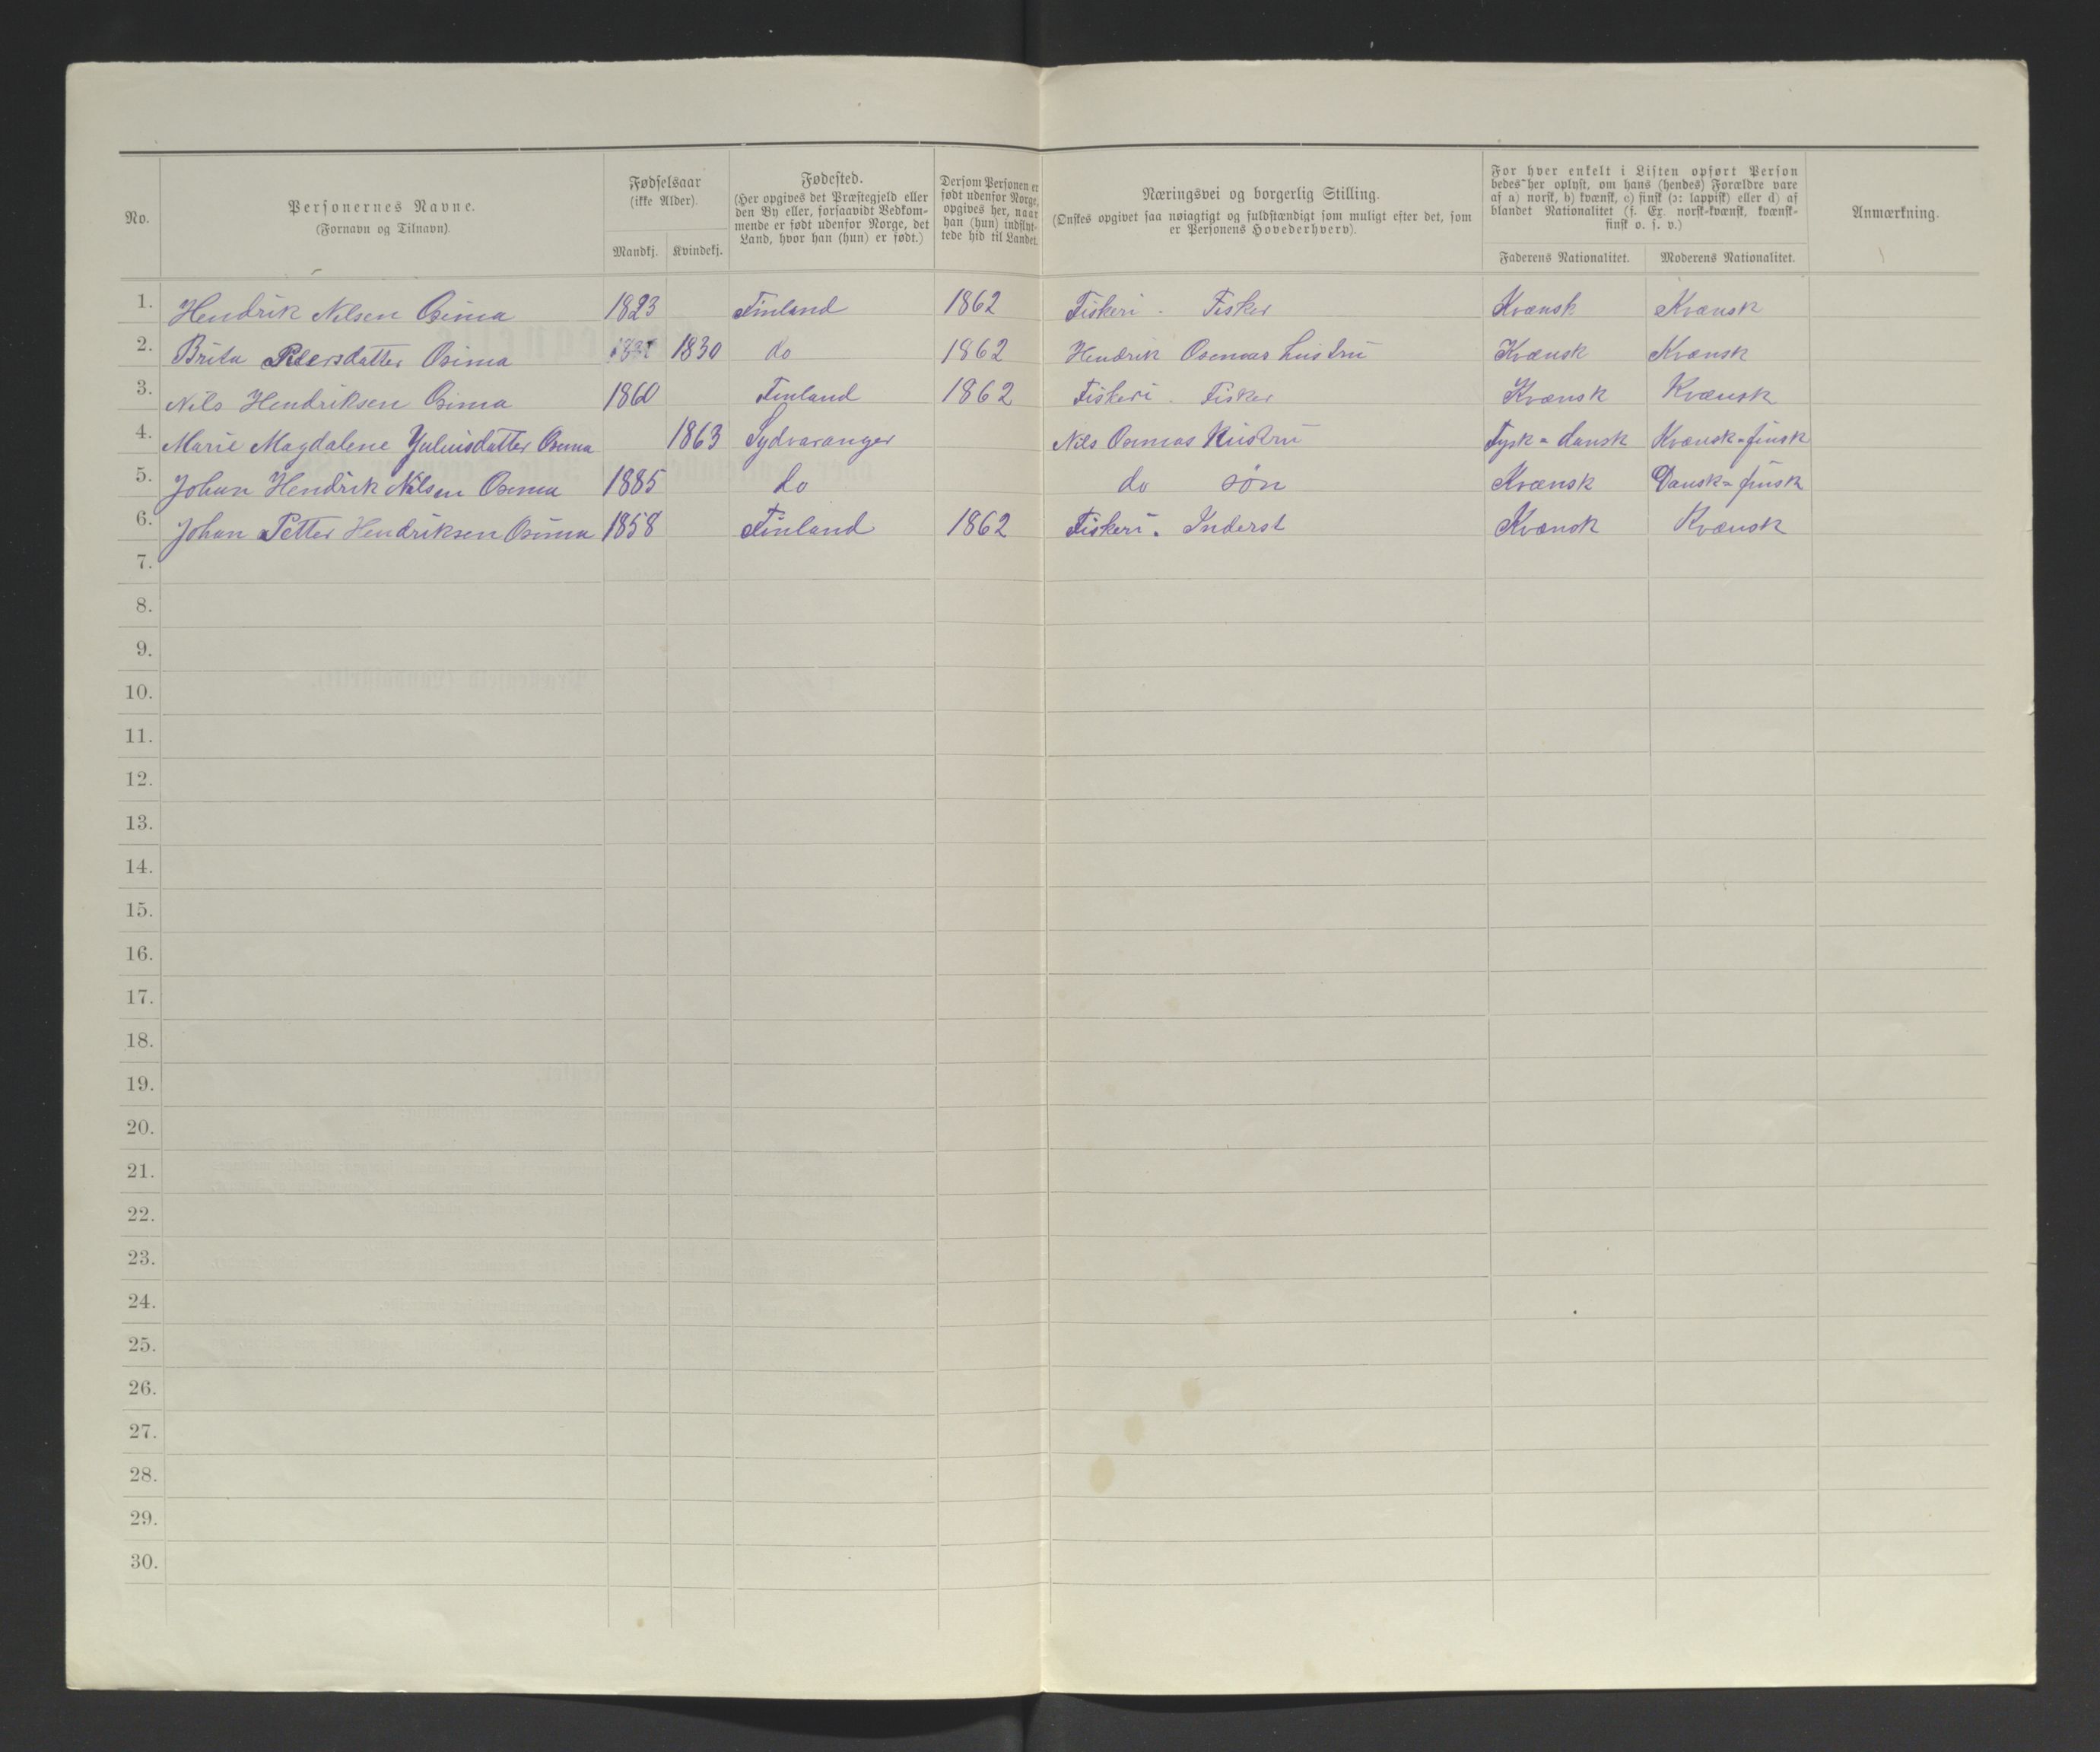 No.
Personernes Navne.
(Fornavn og Tilnavn).
Fødselsaar
(ikke Alder).
Mandkj. Kvindekj.
Fødested.
(Her opgives det Præstegjeld eller
den By eller, forsaavidt Vedkom-
mende er født udenfor Norge, det
Land, hvor han (hun) er født.)
Dersom Personen er
født udenfor Norge,
opgives her, naar
han (hun) indflyt-
tede hid til Landet.
Næringsvei og borgerlig Stilling.
(Ønskes opgivet saa nøiagtigt og fuldstændigt som muligt efter det, som
er Personens Hovederhverv).
For hver enkelt i Listen opført Person
bedes her oplyst, om hans (hendes) Forældre vare
af a) norsk, b) kvænsk, c) finsk (ɔ: lappisk) eller d) af
blandet Nationalitet (f. Ex. norsk-kvænsk, kvænsk-
finsk o. s. v.)
Faderens Nationalitet. Moderens Nationalitet.
Anmærkning.
1. Hendrik Nilsen Osima 1823 Finland 1862 Fiskeri - Fisker Kvænsk Kvænsk
2. Brita Peersdatter Osima 1830 do 1862 Hendrik Osemas hustru Kvænsk Kvænsk
3. Nils Hendriksen Osima 1860 Finland 1862 Fiskeri . Fisker Kvænsk Kvænsk
4. Marie Magdalene Juliusdatter Osema 1863 Sydvaranger Nils Osemas Hustru Tysk = dansk Kvænsk = finsk
5. Johan Hendrik Nilsen Osema 1885 do do søn Kvænsk Dansk = finsk
6. Johan Petter Hendriksen Osima 1858 Finland 1862 Fiskeri . Inderst Kvænsk Kvænsk
7.
8.
9.
10.
11.
12.
13.
14.
15.
16.
17.
18.
19.
20.
21.
22.
23.
24.
25.
26.
27.
28.
29.
30.